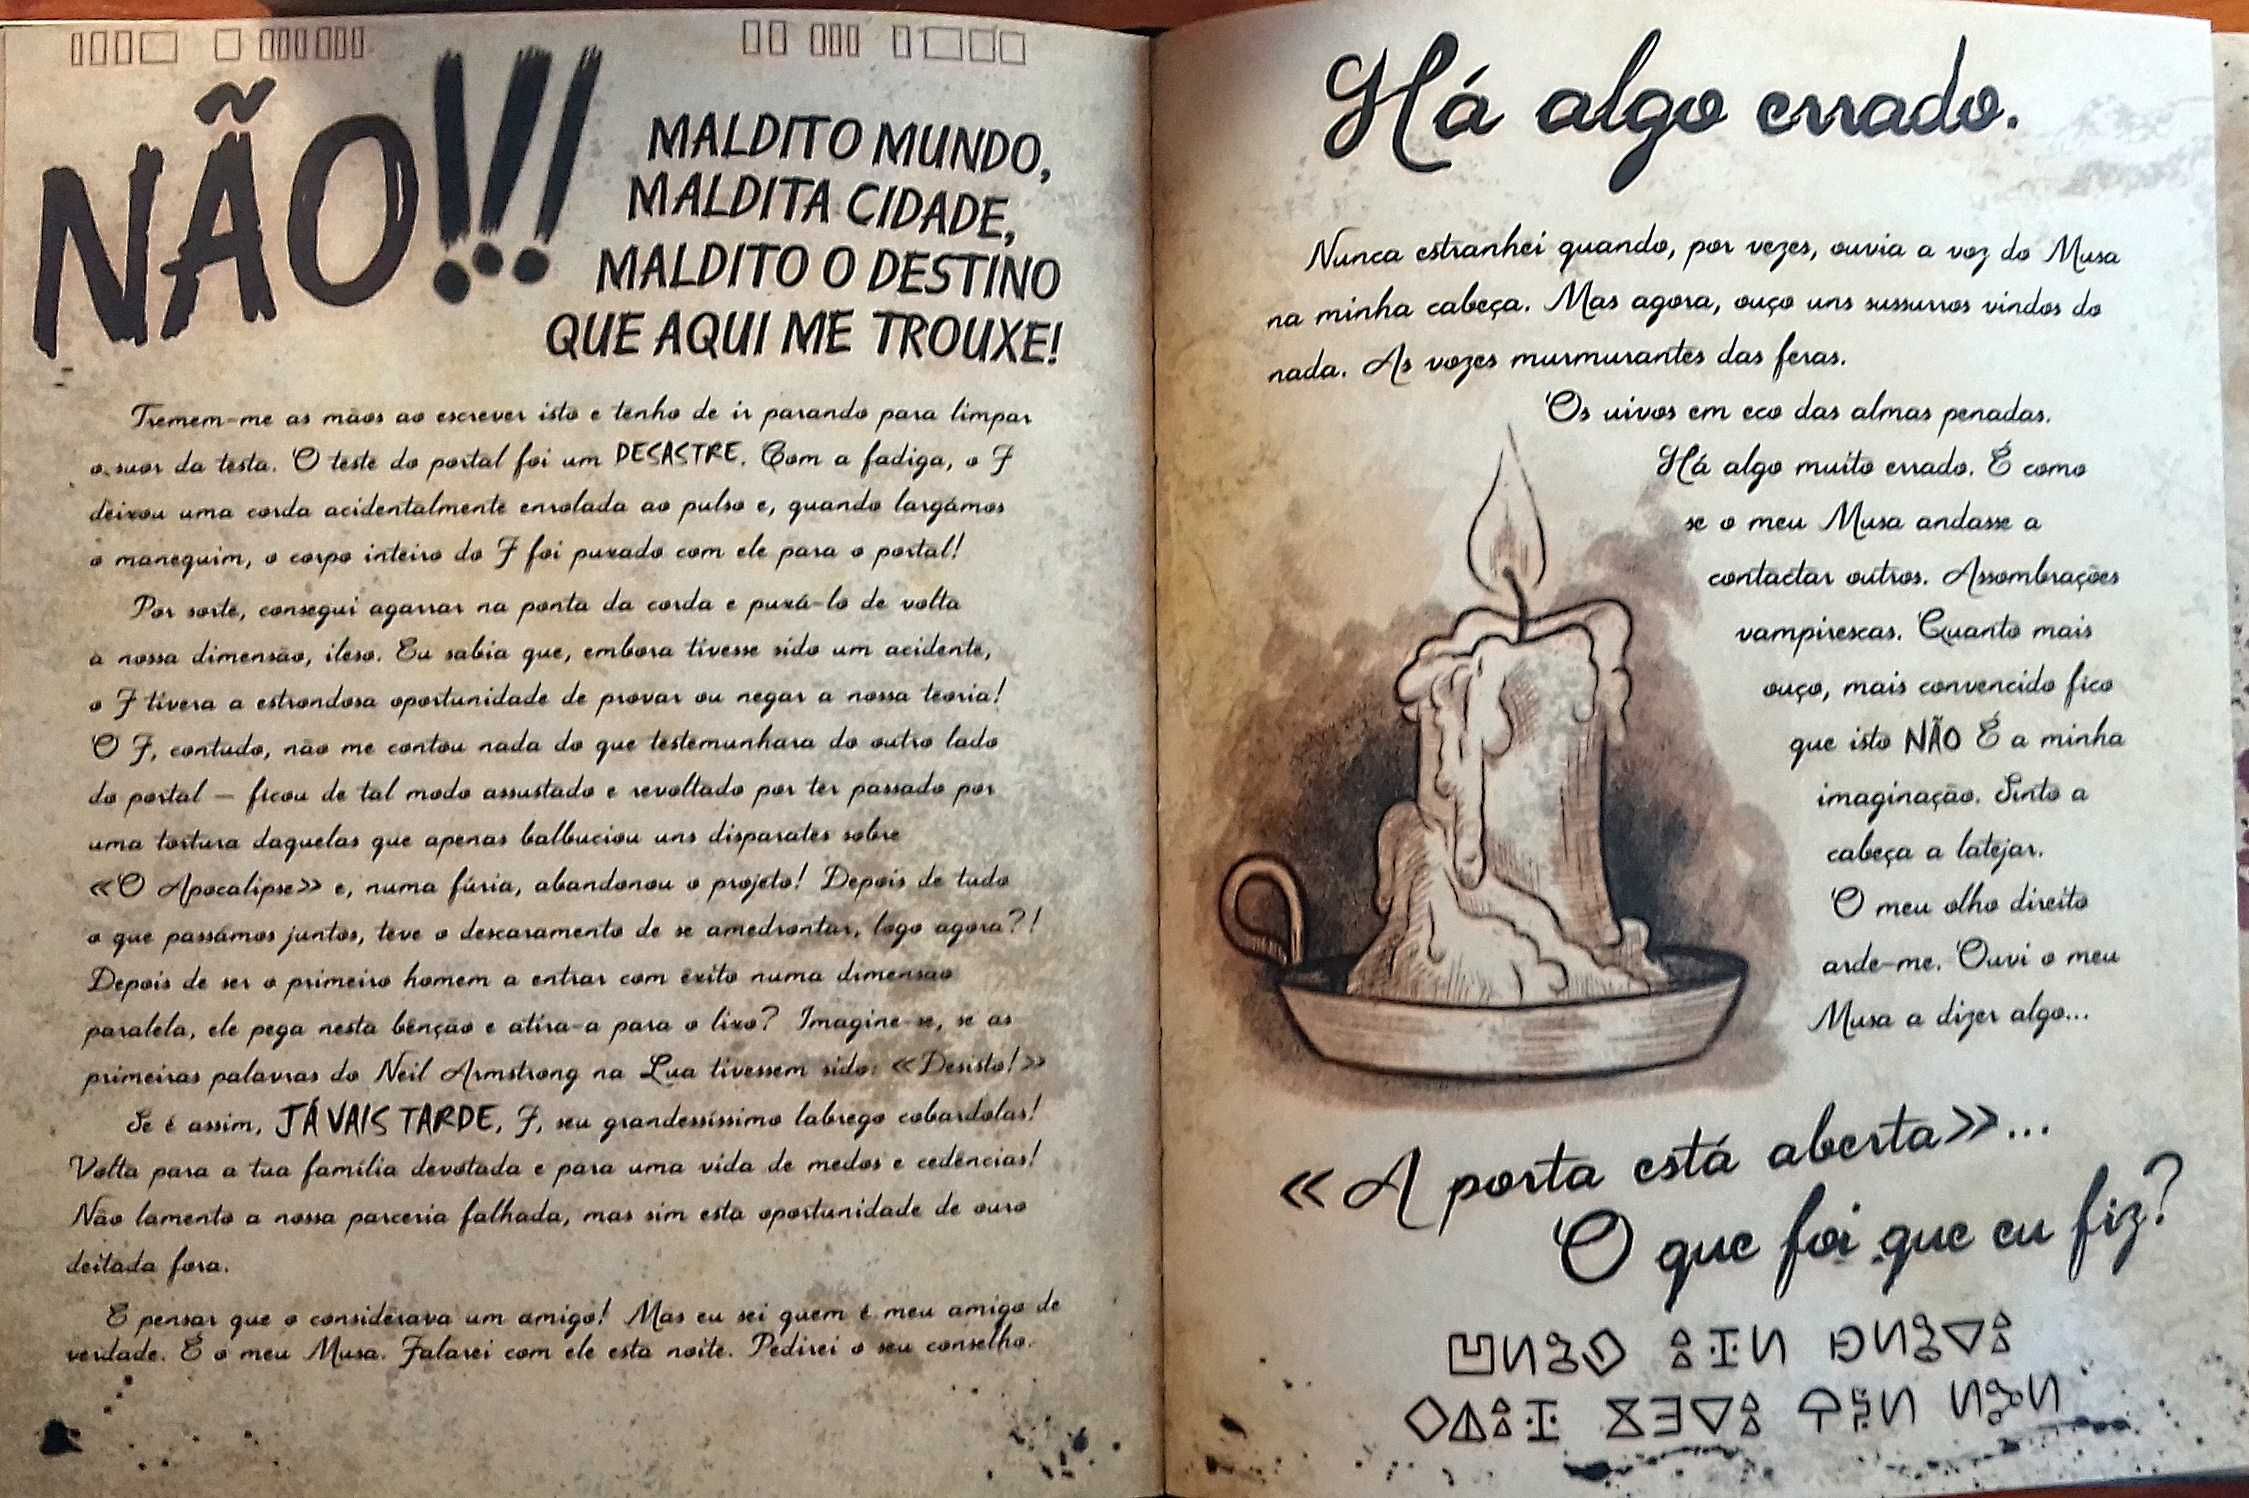 NÃO!!!
MALDITO MUNDO,
MALDITA CIDADE,
MALDITO O DESTINO
QUE AQUI ME TROUXE!
Tremem-me as mãos ao escrever isto e tenho de ir parando para limpar
o suor da testa. O teste do portal foi um DESASTRE. Com a fadiga, o F
deixou uma corda acidentalmente enrolada ao pulso e, quando largámos
o manequim, o corpo inteiro do F foi puxado com ele para o portal!
Por sorte, consegui agarrar na ponta da corda e puxá-lo de volta
à nossa dimensão, ileso. Eu sabia que, embora tivesse sido um acidente,
o F tivera a estrondosa oportunidade de provar ou negar a nossa teoria!
O F, contudo, não me contou nada do que testemunhara do outro lado
do portal — ficou de tal modo assustado e revoltado por ter passado por
uma tortura daquelas que apenas balbuciou uns disparates sobre
«O Apocalipse» e, numa fúria, abandonou o projeto! Depois de tudo
o que passámos juntos, teve o descaramento de se amedrontar, logo agora?!
Depois de ser o primeiro homem a entrar com êxito numa dimensão
paralela, ele pega nesta bênção e atira-a para o lixo? Imagine-se, se as
primeiras palavras do Neil Armstrong na Lua tivessem sido: «Desisto!»
Se é assim, JÁ VAIS TARDE, F, seu grandessíssimo labrego cobardolas!
Volta para a tua família devotada e para uma vida de medos e cedências!
Não lamento a nossa parceria falhada, mas sim esta oportunidade de ouro
deitada fora.
E pensar que o considerava um amigo! Mas eu sei quem é meu amigo de
verdade. É o meu Musa. Falarei com ele esta noite. Pedirei o seu conselho.
Há algo errado.
Nunca estranhei quando, por vezes, ouvia a voz do Musa
na minha cabeça. Mas agora, ouço uns sussurros vindos do
nada. As vozes murmurantes das feras.
Os uivos em eco das almas penadas.
Há algo muito errado. É como
se o meu Musa andasse a
contactar outros. Assombrações
vampirescas. Quanto mais
ouço, mais convencido fico
que isto NÃO É a minha
imaginação. Sinto a
cabeça a latejar.
O meu olho direito
arde-me. Ouvi o meu
Musa a dizer algo...
«A porta está aberta»...
O que foi que eu fiz?